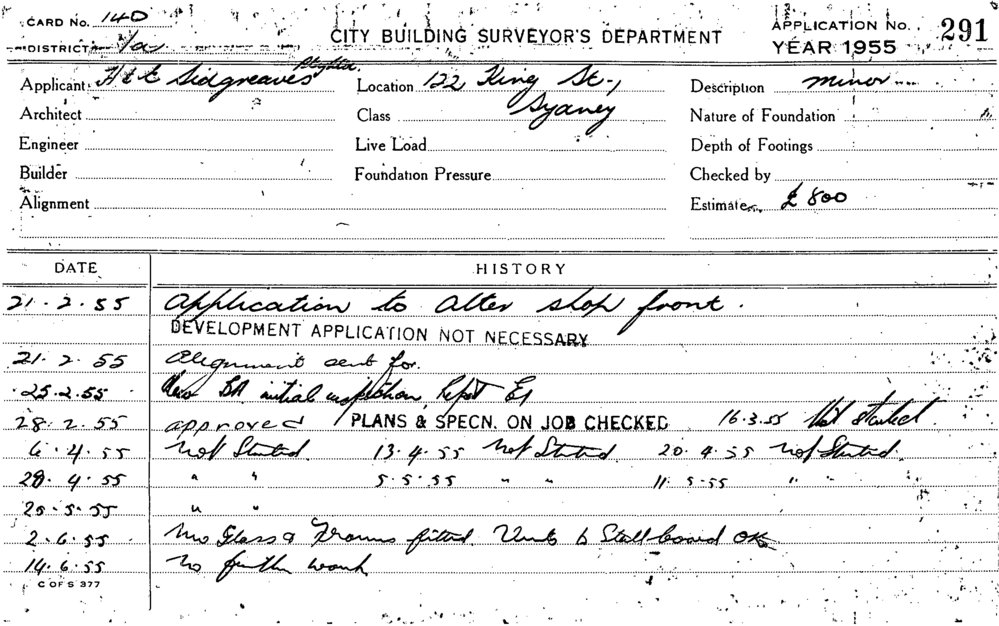 CARD No. 140
DISTRICT 1/a
CITY BUILDING SURVEYOR'S DEPARTMENT
APPLICATION No. 291
YEAR 1955
Applicant H & E Sidgreaves Pty Ltd.
Location 122 King St.,
Sydney
Description minor
Architect
Class
Nature of Foundation
Engineer
Live Load
Depth of Footings
Builder
Foundation Pressure
Checked by
Alignment
Estimate £ 800
DATE HISTORY
21. 2. 55 Application to alter shop front.
DEVELOPMENT APPLICATION NOT NECESSARY
21. 2. 55 Alignment sent for.
25.2.55 BA initial inspection,
28. 2. 55 approved PLANS & SPECN. ON JOB CHECKED 16.3.55 Not started.
6. 4. 55 Not Started. 13.4.55 Not Started. 20.4.55 Not Started.
28. 4. 55 " " 5.5.55 " " 11.5.55 " "
25.5.55 " "
2.6.55 Glass & Frames fitted. Vents to Stallboard OK
14.6.55 No further work
C OF S 377